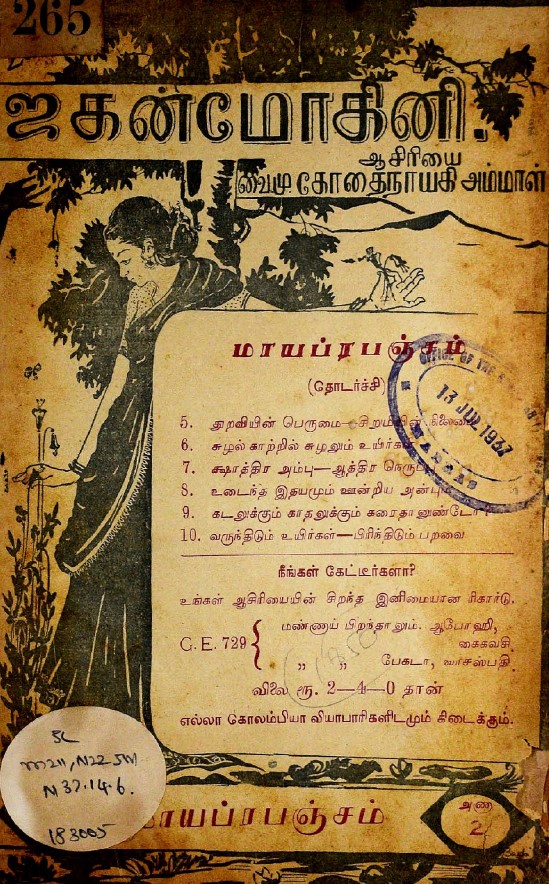 265
ஜகன்மோகினி.
ஆசிரியை
வைமு கோதைநாயகி அம்மாள்
மாயப்ரபஞ்சம்
(தோடர்ச்சி)
5. துறவியின் பெருமை—சிறுமியின் நிலைமை
6. சுழல் காற்றில் சுழலும் உயிர்கள்
7. க்ஷாத்திர அம்பு—ஆத்திர நெருப்பு
8. உடைந்த இதயமும் ஊன்றிய அன்பும்
9. கடலுக்கும் காதலுக்கும் கரைதானுண்டோ
10. வருந்திடும் உயிர்கள்—பிரிந்திடும் பறவை
நீங்கள் கேட்டீர்களா?
உங்கள் ஆசிரியையின் சிறந்த இனிமையான ரிகார்டு.
G. E. 729 { மண்ணாய் பிறந்தாலும். ஆபோஹி, கைகவசி
,, ,, பேகடா, வாசஸ்பதி
விலை ரூ. 2—4—0 தான்
எல்லா கொலம்பியா வியாபாரிகளிடமும் கிடைக்கும்.
OFFICE OF THE
13 JUL 1937
SC
m211, N22 SM
N37.14.6.
183005
மாயப்ரபஞ்சம்
அணா
2